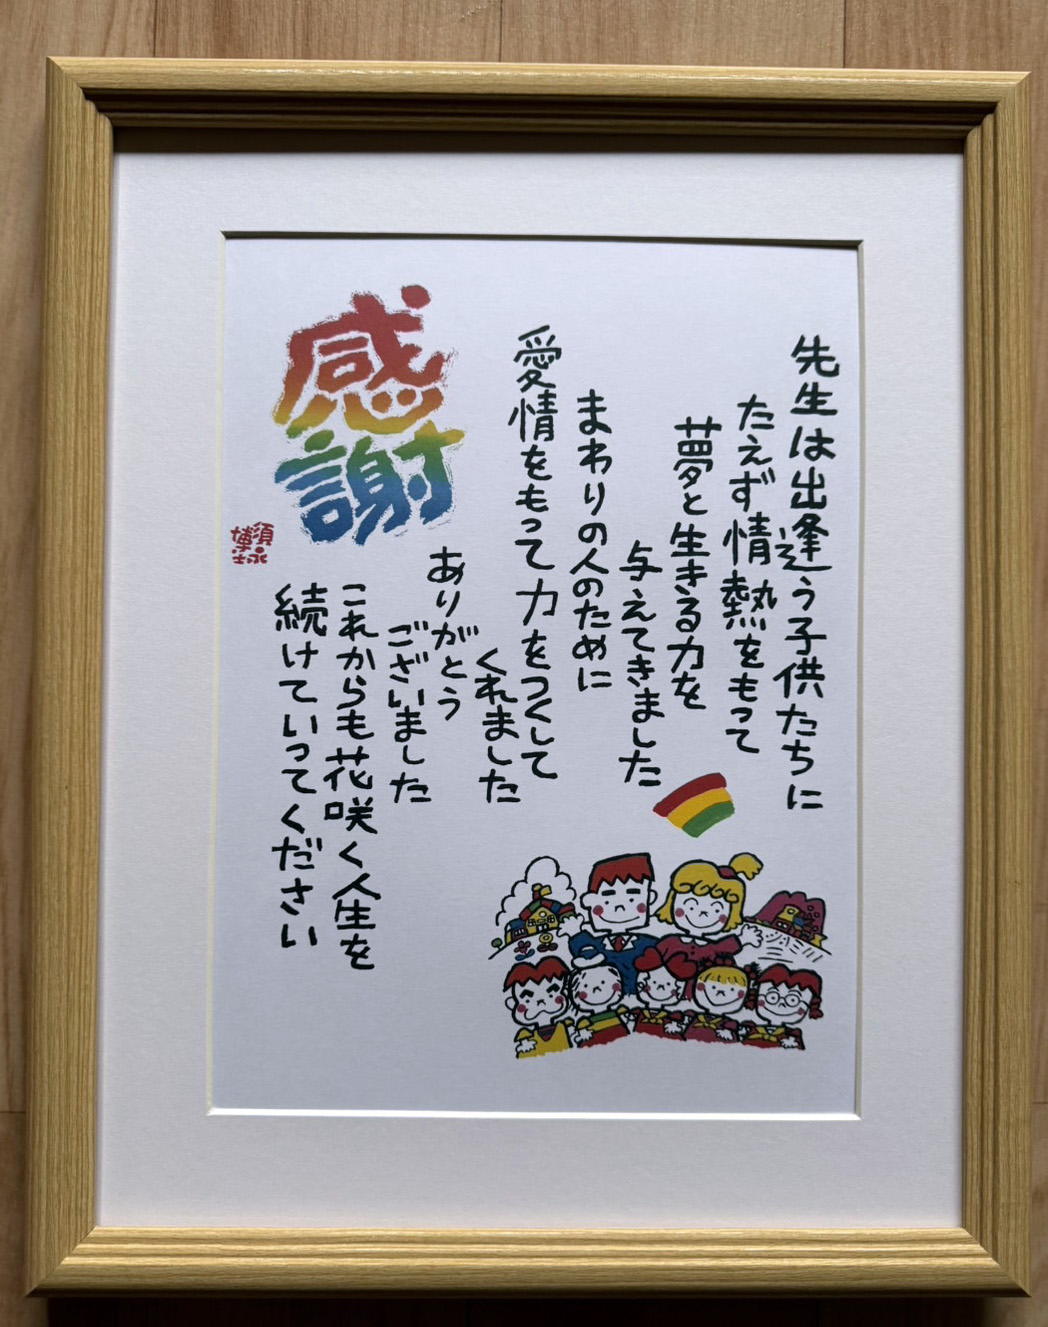 先生は出逢う子供たちに
たえず情熱をもって
夢と生きる力を
与えてきました
まわりの人のために
愛情をもって力をつくして
くれました
ありがとう
ございました
これからも花咲く人生を
続けていってください
感謝
須永
博士